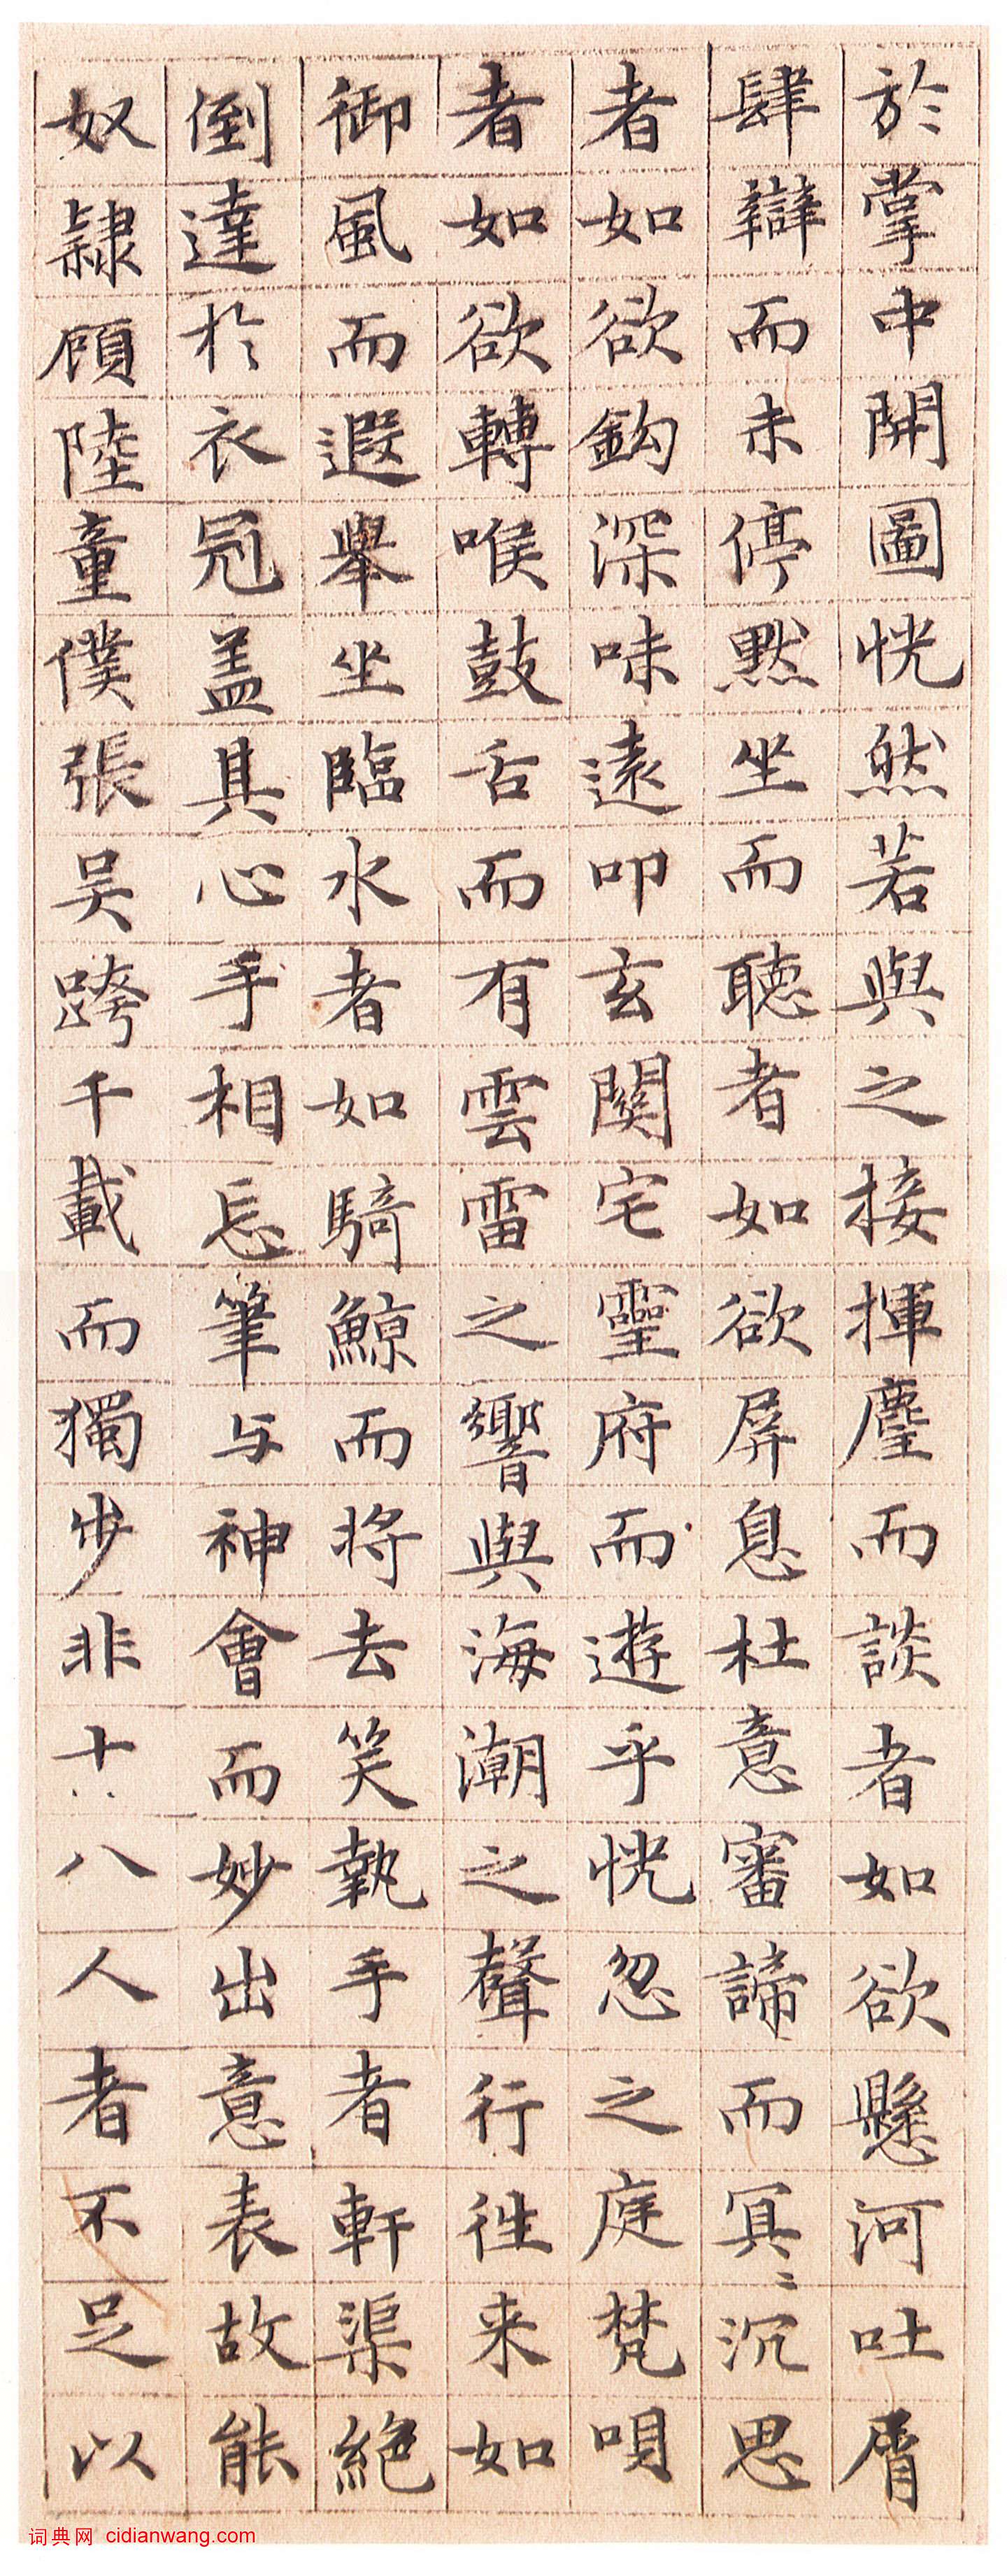 於掌中開圖恍然若與之接揮麈而談者如欲懸河吐屑
肆辯而未停默坐而聽者如欲屏息杜意審諦而冥〻沉思
者如欲鈎深味遠叩玄關宅靈府而遊乎恍忽之庭梵唄
者如欲轉喉鼓舌而有雲雷之響與海潮之聲行往来如
御風而遐舉坐臨水者如騎鯨而将去笑執手者軒渠絶
倒達於衣冠盖其心手相忘筆与神會而妙出意表故能
奴隸顧陸童僕張吴跨千載而獨步非十八人者不足以
词典网 cidianwang.com